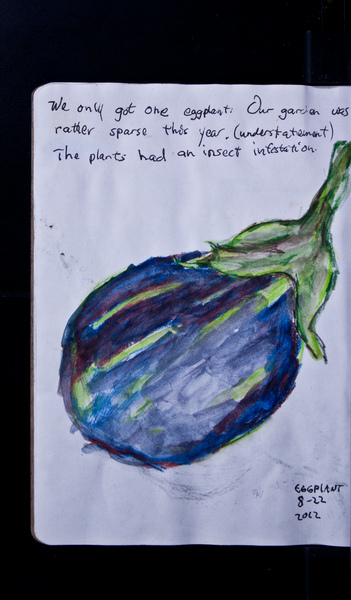 We only got one eggplant. Our garden was
rather sparse this year. (understatement)
The plants had an insect infestation.
EGGPLANT
8-22
2012